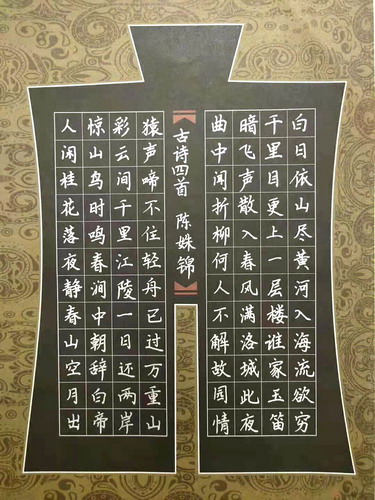 白日依山尽黄河入海流欲穷
千里目更上一层楼谁家玉笛
暗飞声散入春风满洛城此夜
曲中闻折柳何人不解故园情
古诗四首 陈姝锦
人闲桂花落夜静春山空月出
惊山鸟时鸣春涧中朝辞白帝
彩云间千里江陵一日还两岸
猿声啼不住轻舟已过万重山